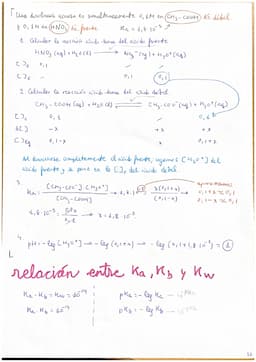 Una disolución acuosa es simultáneamente 0,1M en CH₃-COOH ác. débil
y 0,1M en HNO₃ ác. fuerte Ka = 1,8·10⁻⁵
1. Calcular la reacción ácido-base del ácido fuerte
HNO₃ (aq) + H₂O (l) → NO₃⁻ (aq) + H₃O⁺ (aq)
[ ]₀ 0,1
[ ]f 0,1 0,1
2. Calcular la reacción ácido-base del ácido débil
CH₃-COOH (aq) + H₂O (l) ⇌ CH₃-COO⁻ (aq) + H₃O⁺ (aq)
[ ]₀ 0,1 0,1
[ ] -x +x +x
[ ]eq 0,1-x x 0,1+x
Al disociarse completamente el ácido fuerte, cogemos [H₃O⁺] del
ácido fuerte y se pone en la [ ]₀ del ácido débil
3. Ka = [CH₃-COO⁻] [H₃O⁺] / [CH₃-COOH] → 1,8·10⁻⁵ = x(0,1+x) / (0,1-x)
0,1+x ≈ 0,1
0,1-x ≈ 0,1
1,8·10⁻⁵ = 0,1x / 0,1 → x = 1,8·10⁻⁵
4. pH = -log [H₃O⁺] → -log (0,1+x) → -log (0,1+1,8·10⁻⁵) = 1
relación entre Ka, Kb y Kw
Ka · Kb = Kw = 10⁻¹⁴ pKa = -log Ka
Ka · Kb = 10⁻¹⁴ pKb = -log Kb